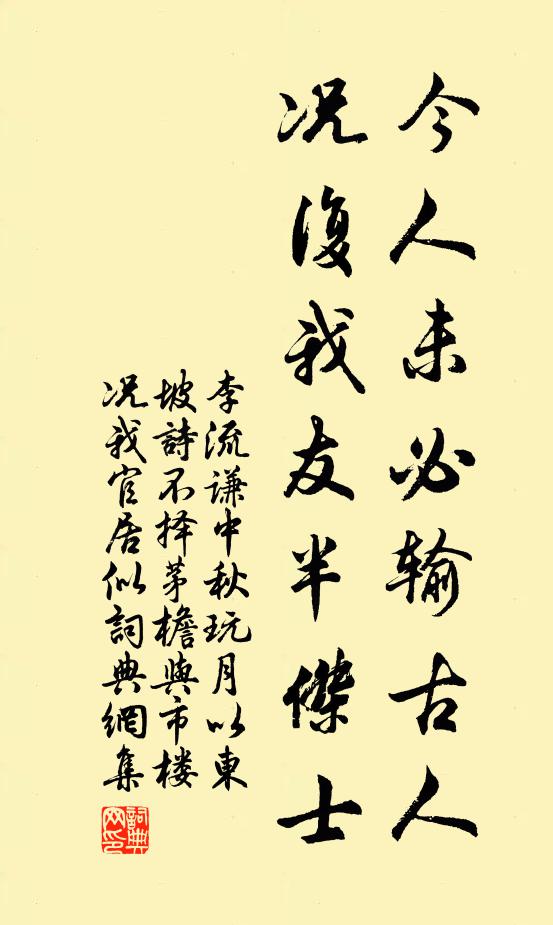 今人未必输古人
况復我友半傑士
李流谦中秋玩月以東
坡詩不择茅檐與市楼
况我官居似詞典網集
詞典
网印